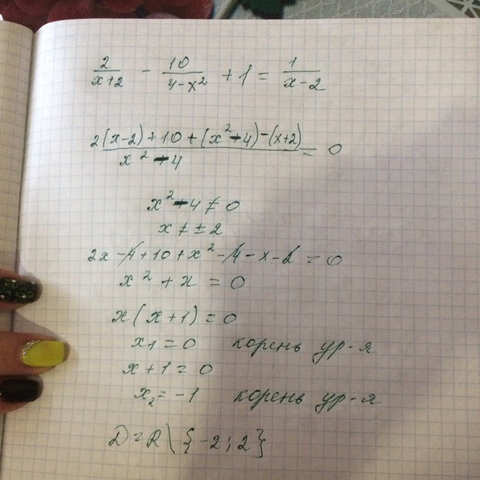 2/(x+2) - 10/(4-x²) + 1 = 1/(x-2)
(2(x-2)+10+(x²-4)-(x+2))/(x²-4) = 0
x²-4 ≠ 0
x ≠ ±2
2x-4+10+x²-4-x-2=0
x²+x=0
x(x+1)=0
x₁=0 корень ур-я
x+1=0
x₂=-1 корень ур-я
D=R\{-2;2}